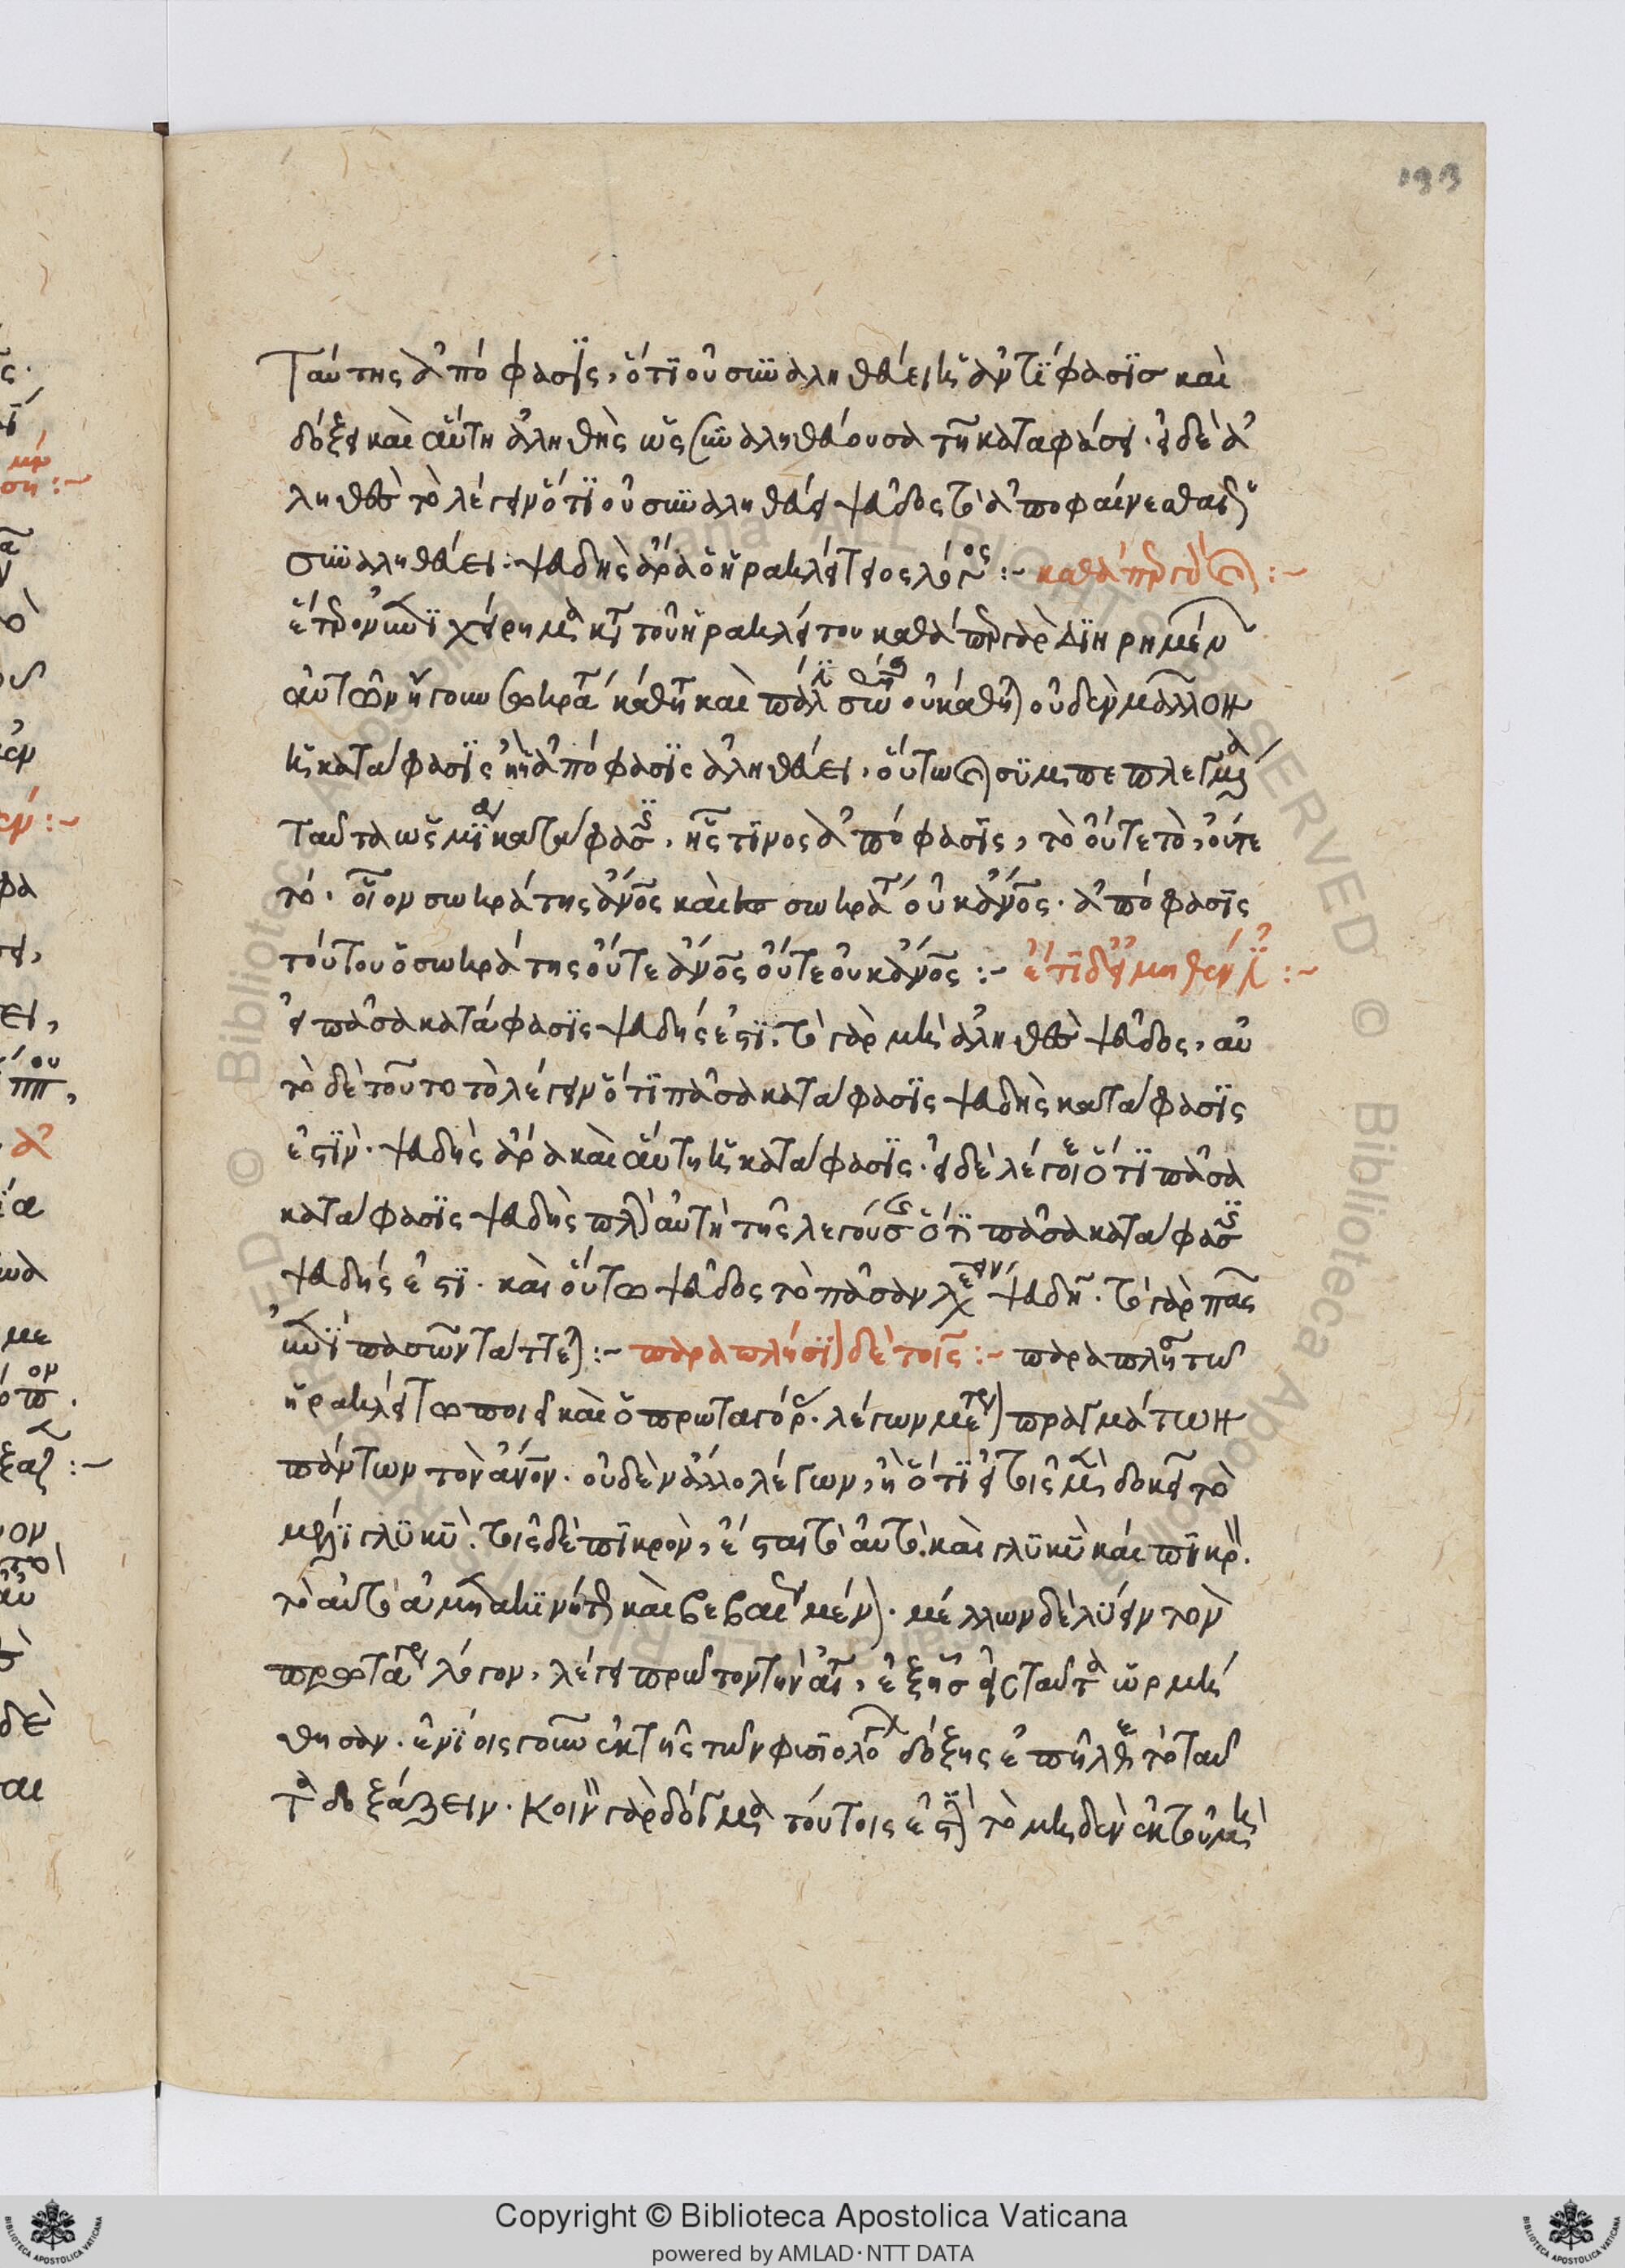 193
ταύτης ἀπόφασις, ὅτι οὐ συναληθεύει ἡ ἀντίφασις καὶ
δόξει καὶ αὕτη ἀληθὴς ὡς συναληθεύουσα τῇ καταφάσει. εἰ δὲ ἀ
ληθὲς τὸ λέγειν ὅτι οὐ συναληθεύει ψεῦδος τὸ ἀποφαίνεσθαι ὅτι
συναληθεύει. ψευδὴς ἄρα ὁ ἡρακλείτειος λόγος :~ καθάπερ γὰρ :~
ἕτερον ἐπιχείρημα κατὰ τοῦ ἡρακλείτου καθάπερ γὰρ διῃρημένων
αὐτῶν ἤγουν σωκράτης κάθηται καὶ πάλιν σωκράτης οὐ κάθηται οὐδὲν μᾶλλον
ἡ κατάφασις ἢ ἡ ἀπόφασις ἀληθεύει, οὕτω συμπεπλεγμένα
ταῦτα ὡς μία κατάφασις, ἧς τινος ἀπόφασις, τὸ οὔτε τὸ, οὔτε
τό. οἷον σωκράτης ἄνος καὶ σωκράτης οὐκ ἄνος. ἀπόφασις
τούτου ὁ σωκράτης οὔτε ἄνος οὔτε οὐκ ἄνος :~ ἔτι δ' εἰ μηθέν :~
εἰ πᾶσα κατάφασις ψευδής ἐστι. τὸ γὰρ μὴ ἀληθὲς ψεῦδος, αὐ
τὸ δὲ τοῦτο τὸ λέγειν ὅτι πᾶσα κατάφασις ψευδὴς κατάφασις
ἐστὶν. ψευδὴς ἄρα καὶ αὕτη ἡ κατάφασις. εἰ δὲ λέγοιεν ὅτι πᾶσα
κατάφασις ψευδὴς πλὴν αὐτὴ τῆς λεγούσης ὅτι πᾶσα κατάφασις
ψευδής ἐστι. καὶ οὕτω ψεῦδος τὸ πᾶσαν λέγειν ψευδῆ. τὸ γὰρ πᾶς
ἐπὶ πασῶν τάττεται :~ παραπλήσιον δὲ τοῖς :~ παραπλησίως τῷ
ἡρακλείτῳ ποιεῖ καὶ ὁ πρωταγόρας. λέγων μέτρον πραγμάτων
πάντων τὸν ἄνον. οὐδὲν ἄλλο λέγων, ἢ ὅτι εἰ τοῖς μὲν δοκεῖ τὸ
μέλι γλυκὺ. τοῖς δὲ πικρὸν, ἔσται τὸ αὐτὸ καὶ γλυκὺ καὶ πικρόν.
μέλλων δὲ λύειν τὸν
πρωταγόρου λόγον, λέγει πρῶτον τὴν αἰτίαν, ἐξ ἧς εἰς ταῦτα ὡρμή
θησαν. ἐνίοις γοῦν ἐκ τῆς τῶν φυσιολόγων δόξης ἐπῆλθε τὸ ταῦ
τα δοξάζειν. κοινὸν γὰρ δόγμα τούτοις ἐστὶ τὸ μηδὲν ἐκ τοῦ μὴ